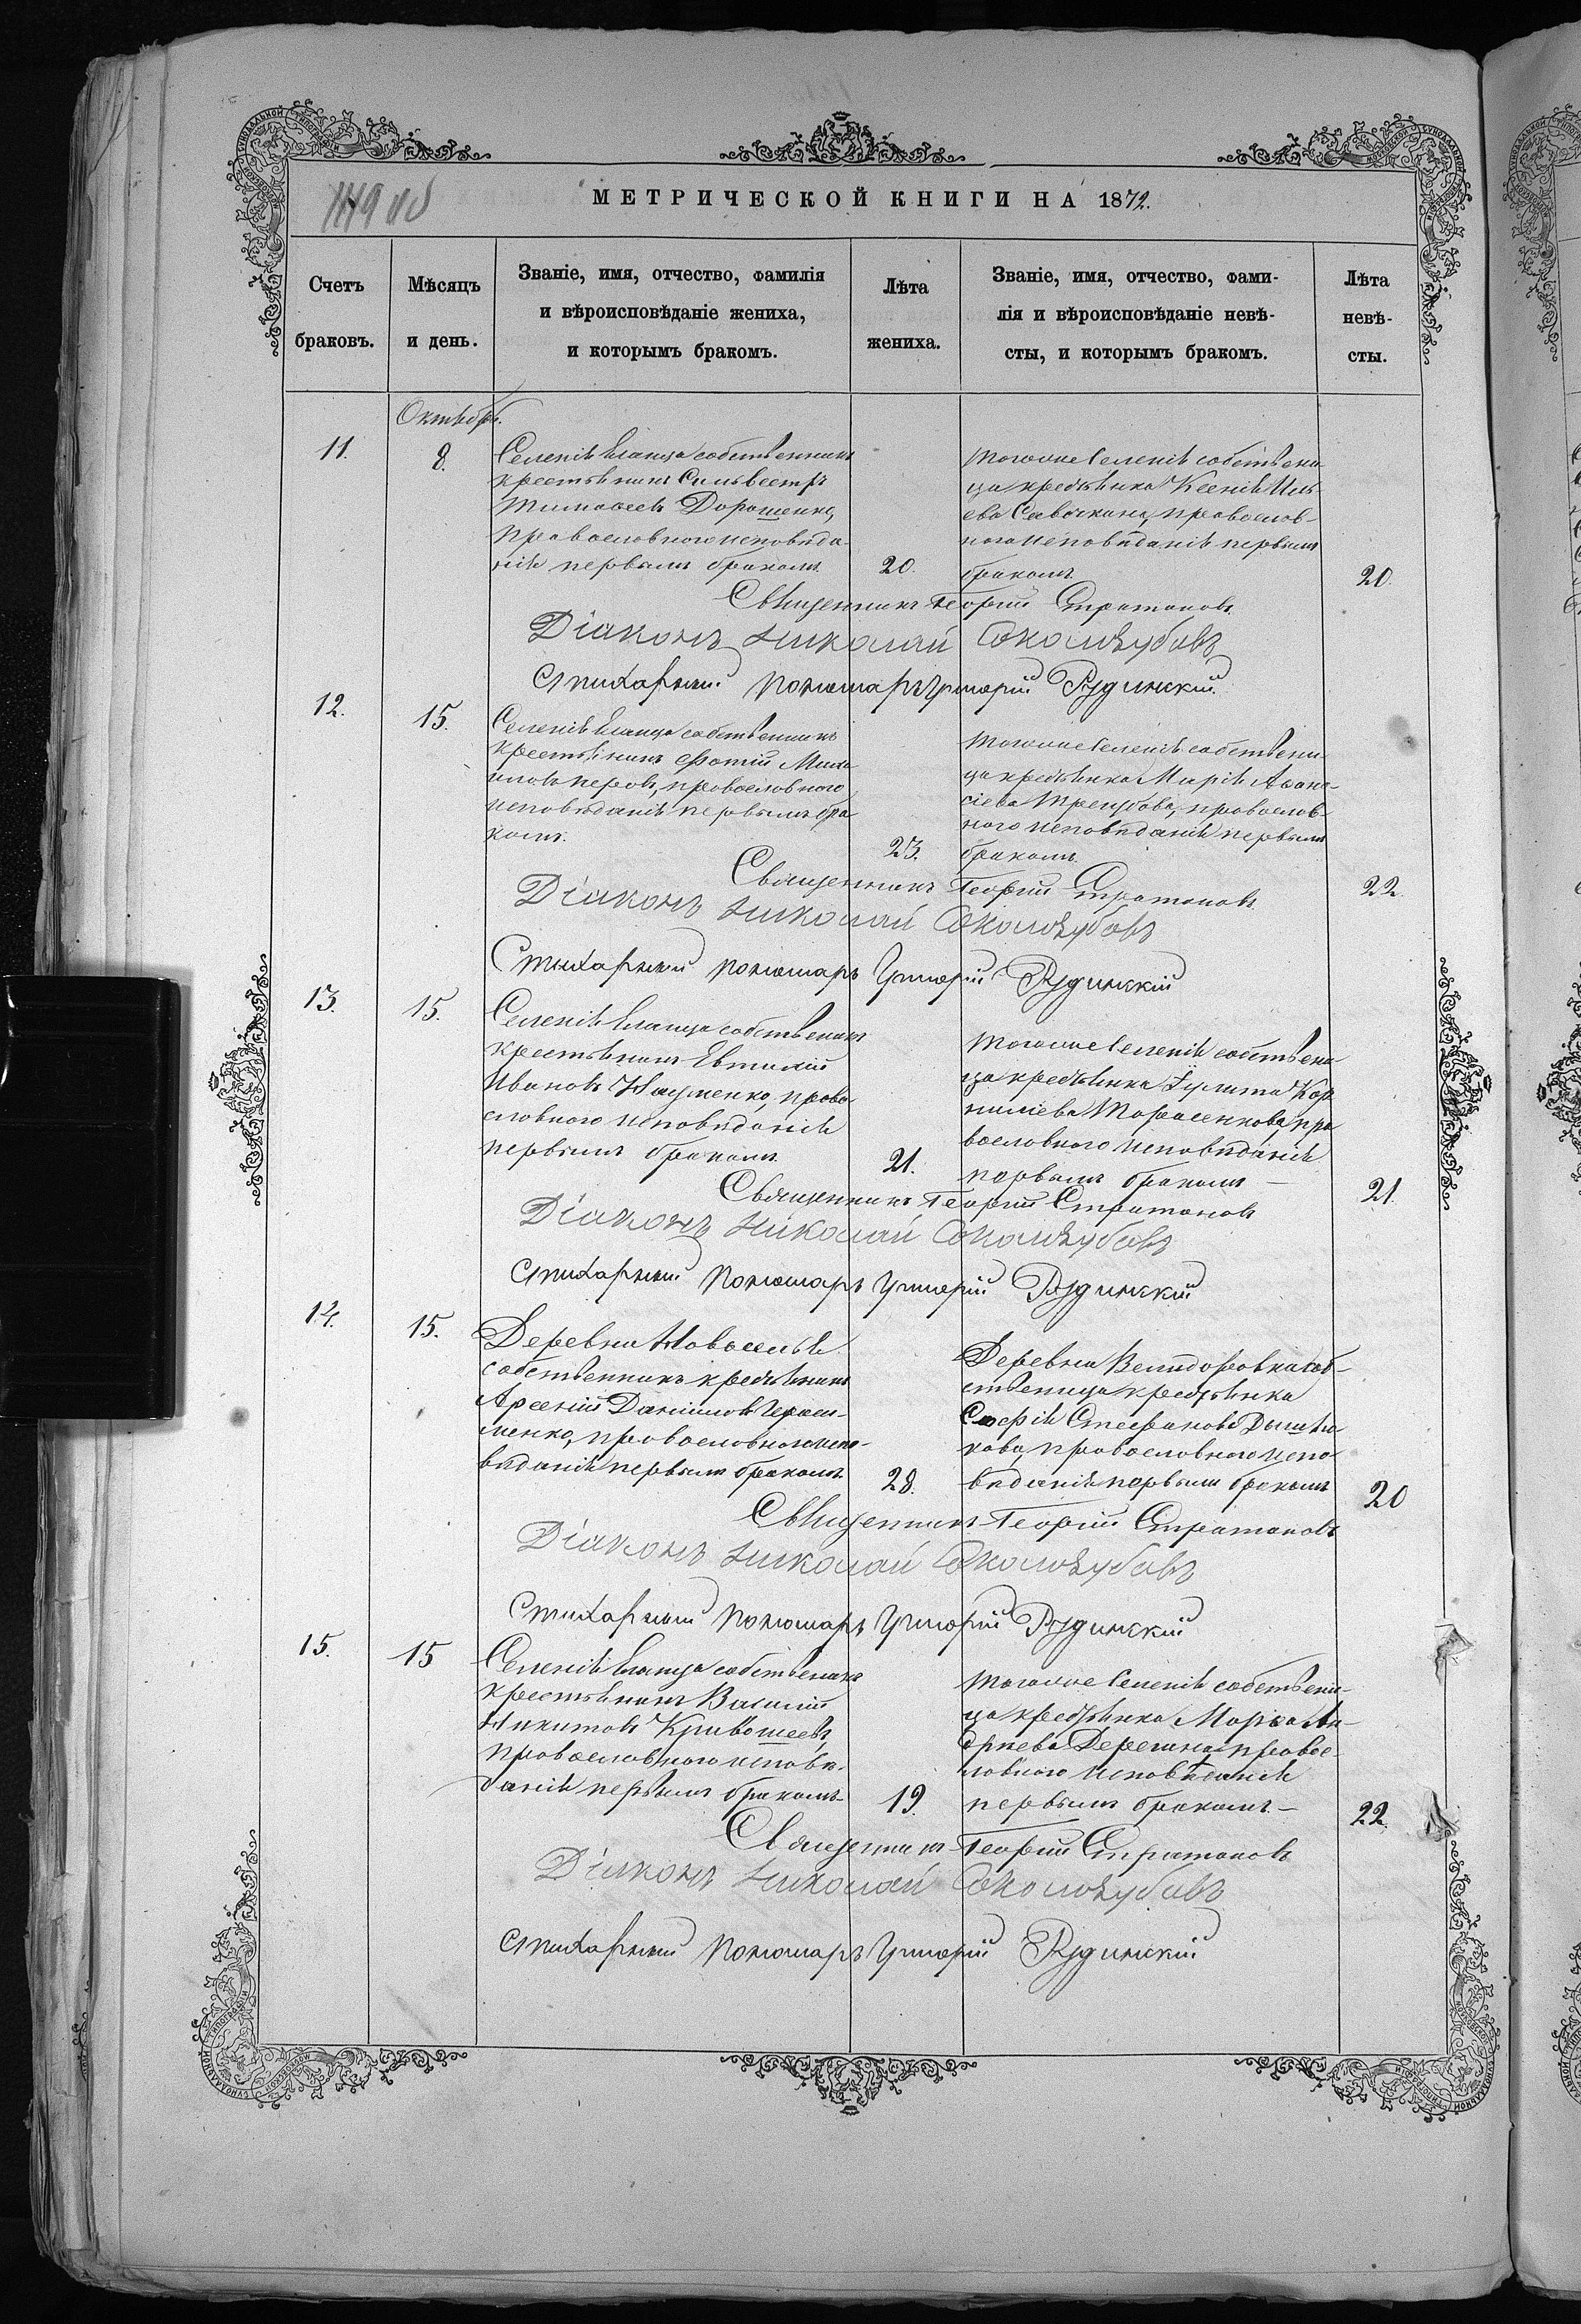 149 об
МЕТРИЧЕСКОЙ КНИГИ НА 1872.
Счетъ браковъ.
Мѣсяцъ и день.
Званіе, имя, отчество, фамилія
и вѣроисповѣданіе жениха,
и которымъ бракомъ.
Лѣта жениха.
Званіе, имя, отчество, фами-
лія и вѣроисповѣданіе невѣ-
сты, и которымъ бракомъ.
Лѣта невѣ-
сты.
Октября.
11.
8.
Селенія собственникъ
крестьянинъ Сильвестръ
Тимофеевъ Дорошенко,
православного исповѣда-
нія первымъ бракомъ.
20.
тогоже Селенія собствени-
ца крестьянка Ксенія Иль-
ева Савочкина, православ-
ного исповѣданія первымъ
бракомъ
20.
Священникъ Георгій Стратоновъ.
Діаконъ Николай
Стихарный пономарь Григорій Рудинскій
12.
15.
Селенія собственникъ
крестьянинъ Фотій Миха-
иловъ Перовъ, православного
исповѣданія первымъ бра-
комъ.
23.
тогоже Селенія собствени-
ца крестьянка Марія Афана-
сіева православ-
ного исповѣданія первымъ
бракомъ.
22.
Священникъ Георгій Стратоновъ.
Діаконъ Николай
Стихарный пономарь Григорій Рудинскій
13.
15.
Селенія собственикъ
крестьянинъ Евтихій
Ивановъ Науменко, право-
славного исповѣданія
первымъ бракомъ
21.
тогоже Селенія собствени
ца крестьянка Іулита Кор
ниліева Тарасенкова, пра
вославного исповѣданія
первымъ бракомъ —
21.
Священникъ Георгій Стратоновъ
Діаконъ Николай
Стихарный пономарь Григорій Рудинскій
14.
15.
Деревни Новоселья
собственникъ крестьянинъ
Арсеній Даніиловъ Гераси-
менко, православного испо-
вѣданія первымъ бракомъ
28.
Деревни соб-
ственица крестьянка
Софія Стефанова
православного испо-
вѣданія первымъ бракомъ
20
Священникъ Георгій Стратоновъ
Діаконъ Николай
Стихарный пономарь Григорій Рудинскій
15.
15
Селенія собственикъ
крестьянинъ Василій
Никитовъ Кривошеевъ,
православного исповѣ-
данія первымъ бракомъ
19.
тогоже Селенія собствени-
ца крестьянка Марфа Ан-
дреева правос-
лавного исповѣданія
первымъ бракомъ —
22.
Священникъ Георгій Стратоновъ
Діаконъ Николай
Стихарный пономарь Григорій Рудинскій